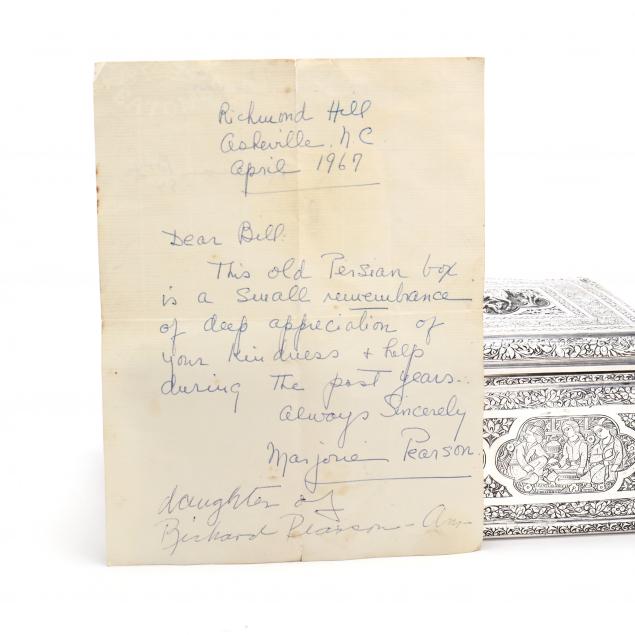 Richmond Hill
Asheville, NC
April 1967
Dear Bill.
This old Persian box
is a small remembrance
of deep appreciation of
your kindness + help
during the past years.
Always Sincerely
Marjorie Pearson.
daughter of
Richard Pearson - Am-